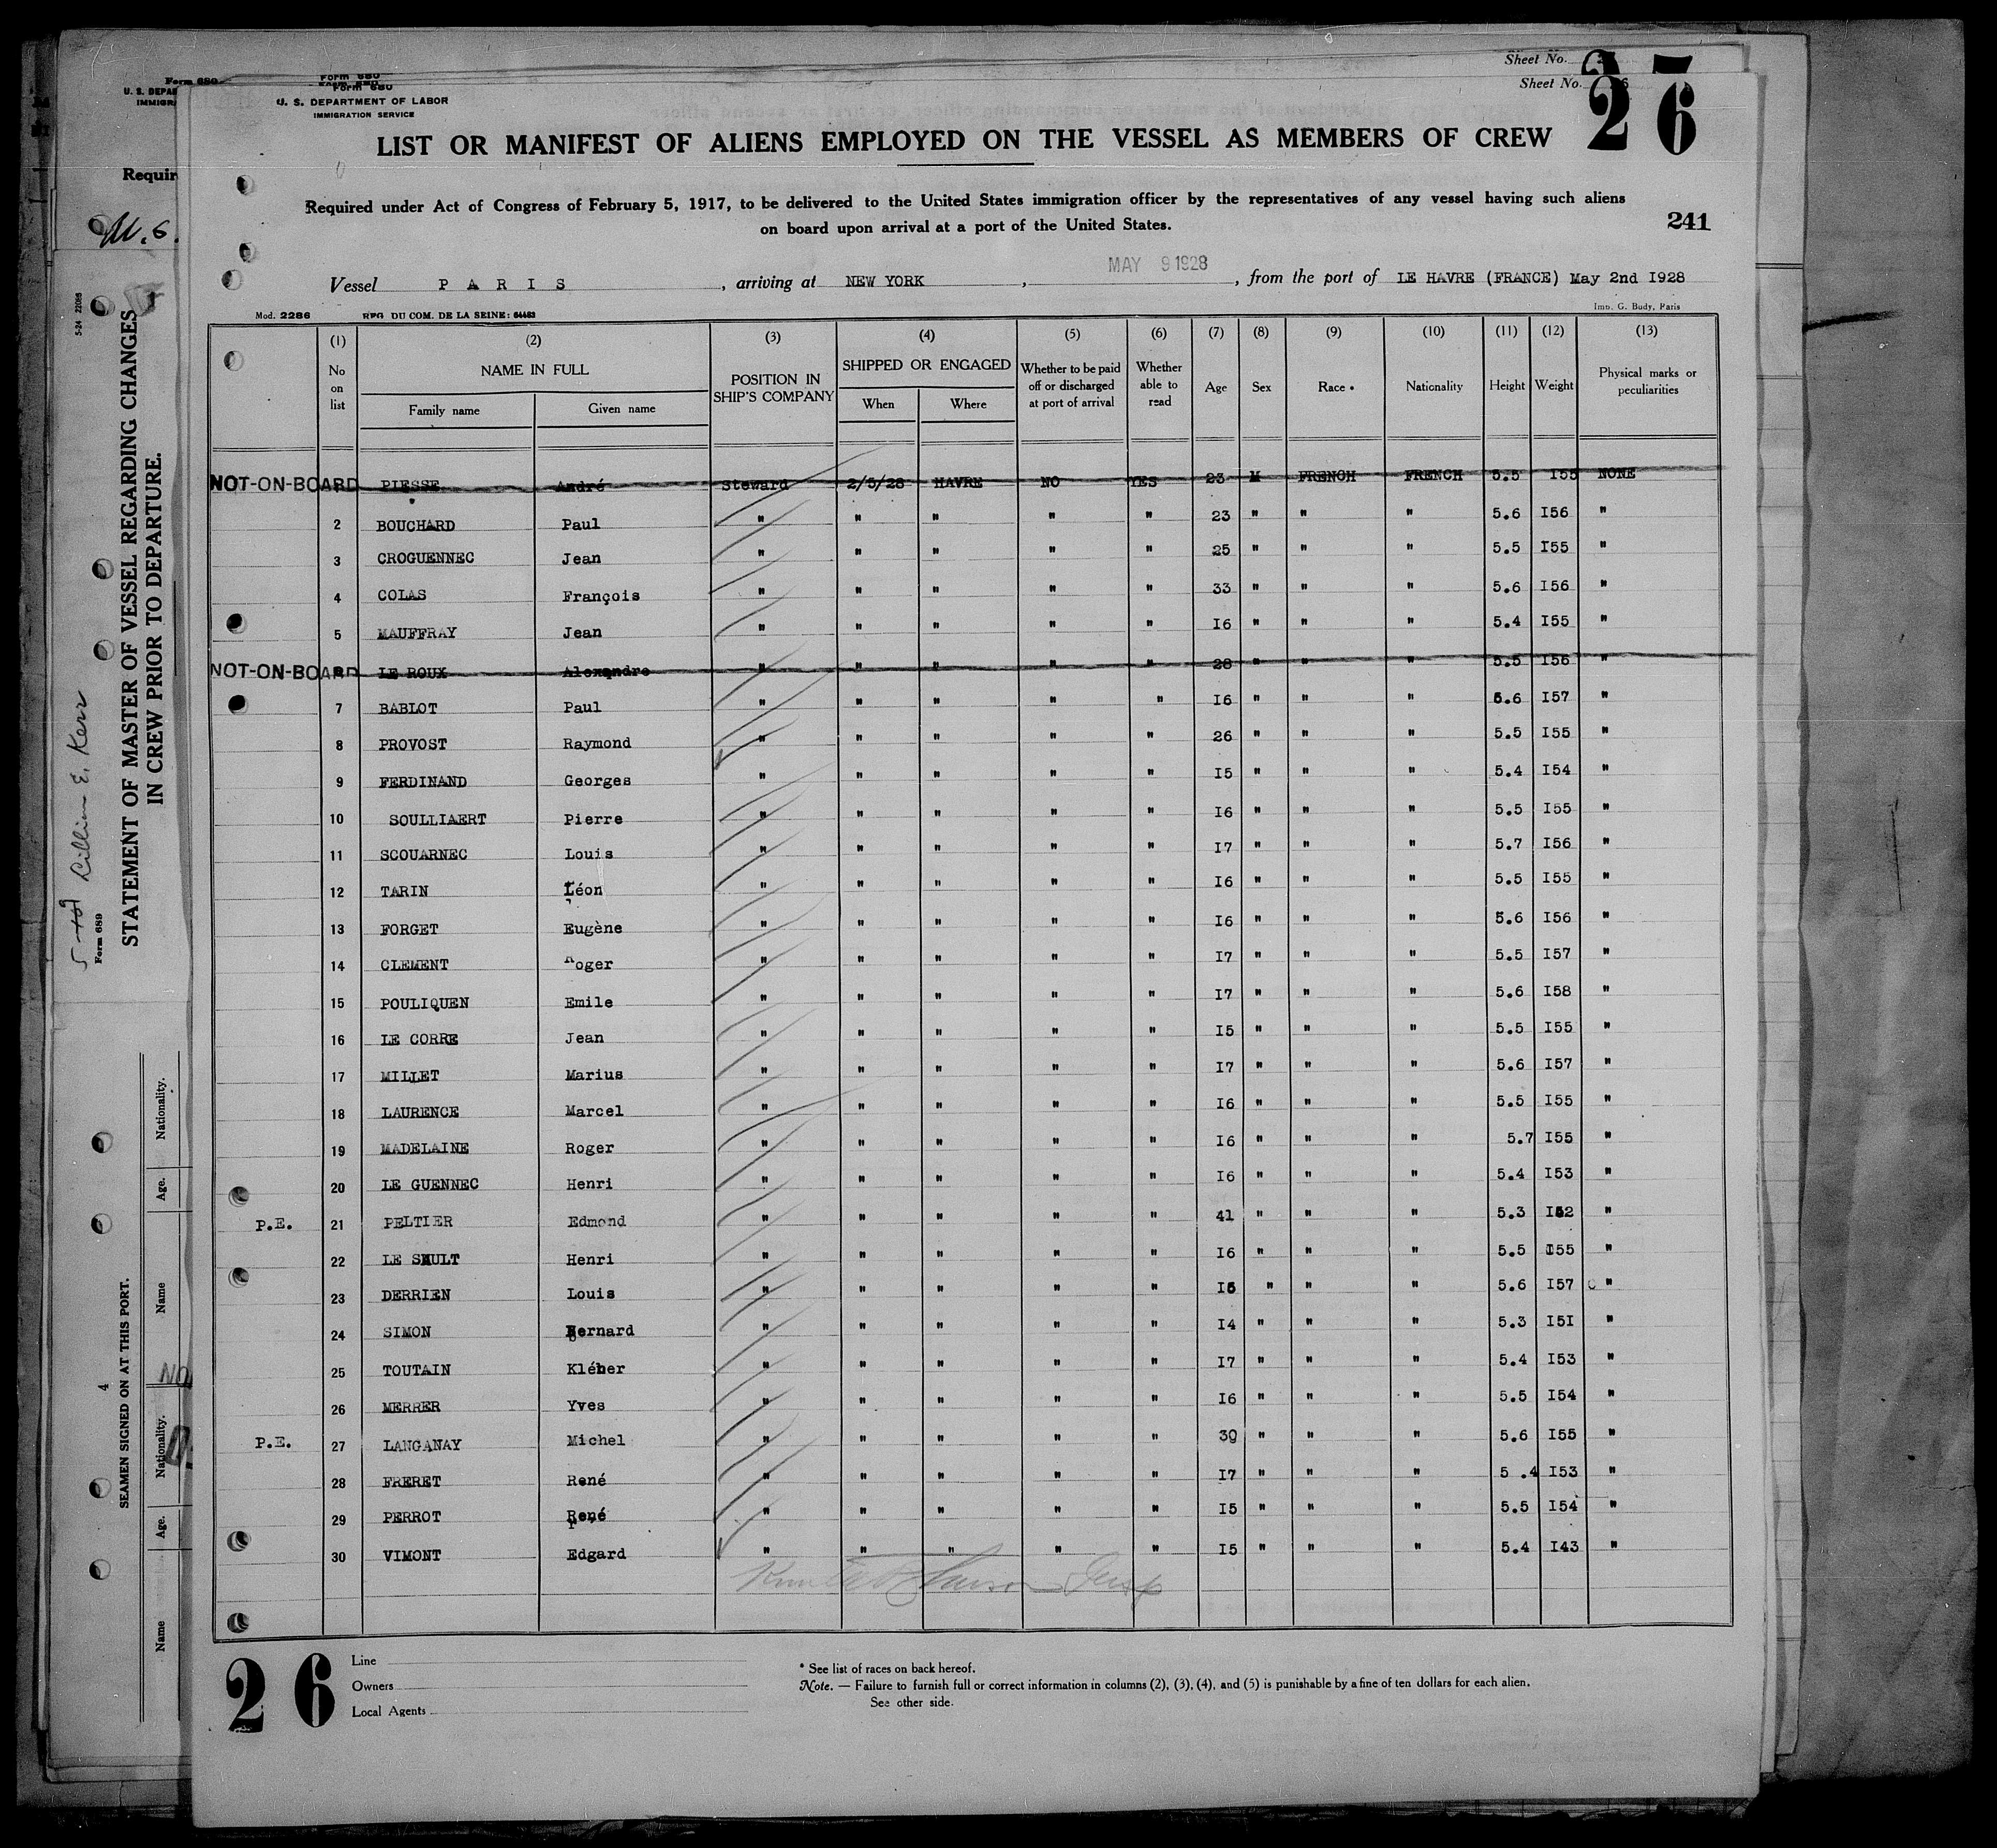 Sheet No.
Sheet No.
26
Form 680
U. S. DEPARTMENT OF LABOR
IMMIGRATION SERVICE
LIST OR MANIFEST OF ALIENS EMPLOYED ON THE VESSEL AS MEMBERS OF CREW
Required under Act of Congress of February 5, 1917, to be delivered to the United States immigration officer by the representatives of any vessel having such aliens
on board upon arrival at a port of the United States.
241
Vessel PARIS, arriving at NEW YORK, MAY 9 1928, from the port of LE HAVRE (FRANCE) May 2nd I928
Mod. 2286 REG. DU COM. DE LA SEINE: 64463 Imp. G. Body, Paris
(1) (2) (3) (4) (5) (6) (7) (8) (9) (10) (11) (12) (13)
No on list NAME IN FULL POSITION IN SHIP'S COMPANY SHIPPED OR ENGAGED Whether to be paid off or discharged at port of arrival Whether able to read Age Sex Race * Nationality Height Weight Physical marks or peculiarities
Family name Given name When Where
NOT-ON-BOARD PIESSE André Steward 2/5/28 HAVRE NO YES 23 M FRENCH FRENCH 5.5 I55 NONE
2 BOUCHARD Paul " " " " " 23 " " " 5.6 I56 "
3 CROGUENNEC Jean " " " " " 25 " " " 5.5 I55 "
4 COLAS François " " " " " 33 " " " 5.6 I56 "
5 MAUFFRAY Jean " " " " " I6 " " " 5.4 I55 "
NOT-ON-BOARD LE ROUX Alexandre " " " " " 28 " " " 5.5 I56 "
7 BABLOT Paul " " " " " I6 " " " 5.6 I57 "
8 PROVOST Raymond " " " " " 26 " " " 5.5 I55 "
9 FERDINAND Georges " " " " " I5 " " " 5.4 I54 "
10 SOULLIAERT Pierre " " " " " I6 " " " 5.5 I55 "
11 SCOUARNEC Louis " " " " " I7 " " " 5.7 I56 "
12 TARIN Léon " " " " " I6 " " " 5.5 I55 "
13 FORGET Eugène " " " " " I6 " " " 5.6 I56 "
14 CLEMENT Roger " " " " " I7 " " " 5.5 I57 "
15 POULIQUEN Emile " " " " " I7 " " " 5.6 I58 "
16 LE CORRE Jean " " " " " I5 " " " 5.5 I55 "
17 MILLET Marius " " " " " I7 " " " 5.6 I57 "
18 LAURENCE Marcel " " " " " I6 " " " 5.5 I55 "
19 MADELAINE Roger " " " " " I6 " " " 5.7 I55 "
20 LE GUENNEC Henri " " " " " I6 " " " 5.4 I53 "
P.E. 21 PELTIER Edmond " " " " " 41 " " " 5.3 I52 "
22 LE SAULT Henri " " " " " I6 " " " 5.5 I55 "
23 DERRIEN Louis " " " " " I6 " " " 5.6 I57 "
24 SIMON Bernard " " " " " I4 " " " 5.3 I5I "
25 TOUTAIN Kléber " " " " " I7 " " " 5.4 I53 "
26 MERRER Yves " " " " " I6 " " " 5.5 I54 "
P.E. 27 LANGANAY Michel " " " " " 39 " " " 5.6 I55 "
28 FRERET René " " " " " I7 " " " 5 .4 I53 "
29 PERROT René " " " " " I5 " " " 5.5 I54 "
30 VIMONT Edgard " " " " " I5 " " " 5.4 I43 "
26
Line
Owners
Local Agents
* See list of races on back hereof.
Note. — Failure to furnish full or correct information in columns (2), (3), (4), and (5) is punishable by a fine of ten dollars for each alien.
See other side.
Form 680
U. S. DEPA
IMMIGRA
Requir
U.S.
5-24 22085
Lillian E. Kerr
Form 689
STATEMENT OF MASTER OF VESSEL REGARDING CHANGES
IN CREW PRIOR TO DEPARTURE.
4
SEAMEN SIGNED ON AT THIS PORT.
Name Age. Nationality. Name Age. Nationality.